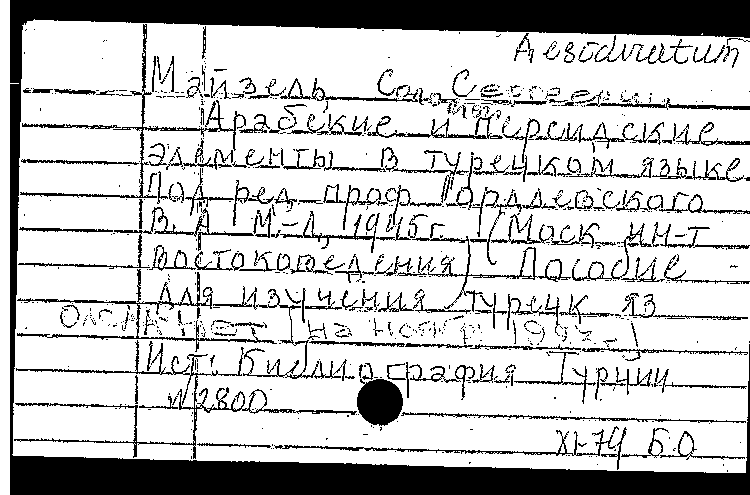 Aesodiratum
Майзель, Соло Сергеевич
Арабские и персидские
элементы в турецком языке
Под ред. проф Гордлевского
В. А М.-Л, 1945г. (Моск ин-т
востоковедения) Пособие
для изучения турецк яз
нет [на ноябр. 199
Ист: Библиография Турции
№2800
XI-74 Б.О